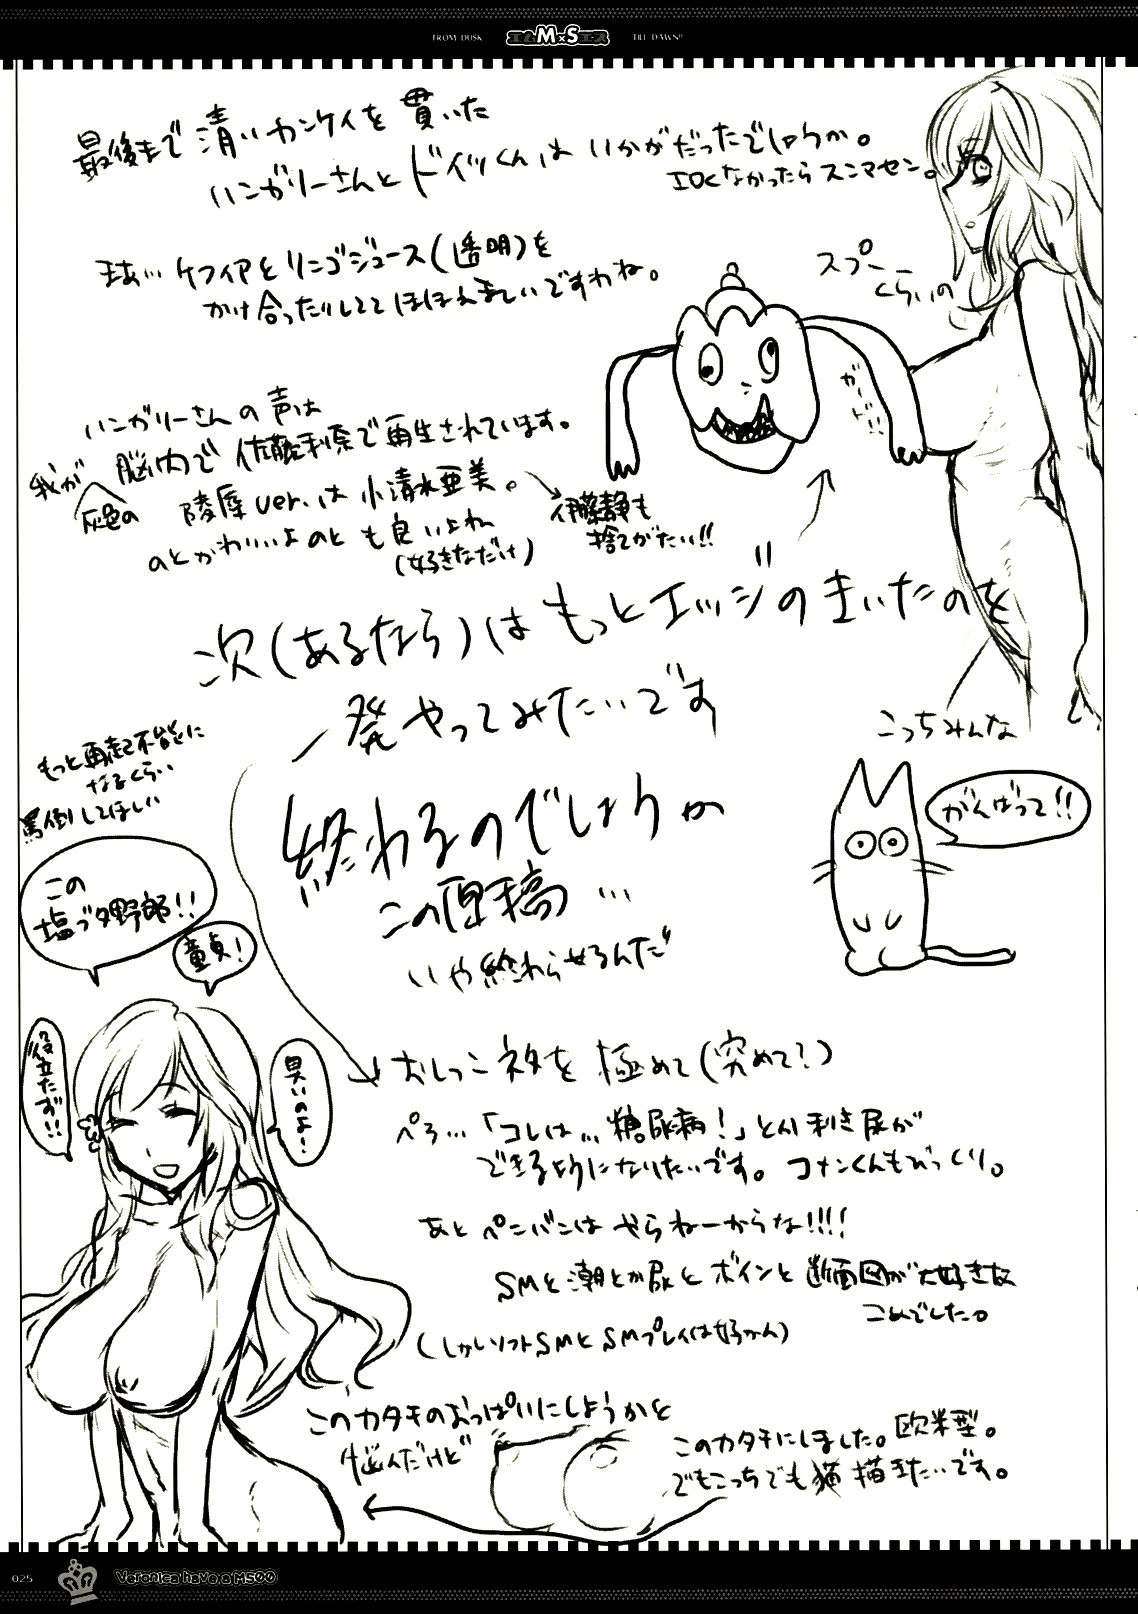 FROM DUSK エムM×Sエス TILL DAWN!!
最後まで清いカンケイを貫いた
ハンガリーさんとドイツくんはいかがだったでしょうか。
エロくなかったらスンマセン。
まあ…ケフィアとリンゴジュース(透明)を
かけ合ったりしててほほえましいですわね。
スプー
くらいの
ハンガリーさんの声は
我が 脳内で佐藤利奈で再生されています。
灰色の
陵辱ver.は小清水亜美。
のとかわいいよのとも良いよね
(好きなだけ)
伊藤静も
捨てがたい!!
次(あるなら)はもっとエッジのきいたのを
一発やってみたいです
こっちみんな
がんばって!!
もっと再起不能に
なるくらい
罵倒してほしい
この
塩ブタ野郎!!
童貞!
役立たず!!
臭いのよー
終わるのでしょうか
この原稿…
いや終わらせるんだ
おしっこネタを極めて(究めて?)
ペろ…「コレは…糖尿病!」とか利き尿が
できるようになりたいです。コナンくんもびっくり。
あとペニバンはやらねーからな!!!!
SMと潮とか尿とボインと断面図が大好きな
こめでした。
(しかしソフトSMとSMプレイは好かん)
このカタチのおっぱいにしようかと
悩んだけど
このカタチにしました。欧米型。
でもこっちでも猫描きたいです。
025 Veronica have a M500